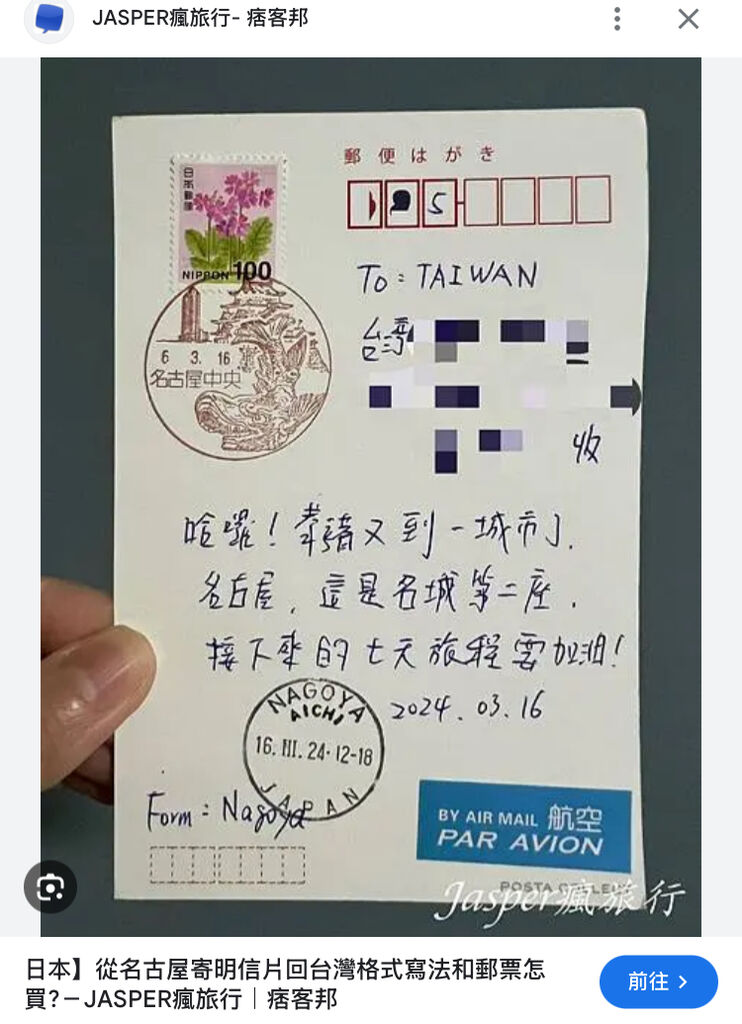 JASPER瘋旅行- 痞客邦
日本郵便
NIPPON 100
郵便はがき
5
To: TAIWAN
台灣
收
6 3. 16
名古屋中央
哈囉！又到一城市了.
名古屋, 這是名城第二座.
接下來的七天旅程要加油!
2024. 03. 16
NAGOYA
AICHI
16. III. 24·12-18
JAPAN
Form: Nagoya
BY AIR MAIL 航空
PAR AVION
Jasper瘋旅行
日本】從名古屋寄明信片回台灣格式寫法和郵票怎
買?－JASPER瘋旅行｜痞客邦
前往